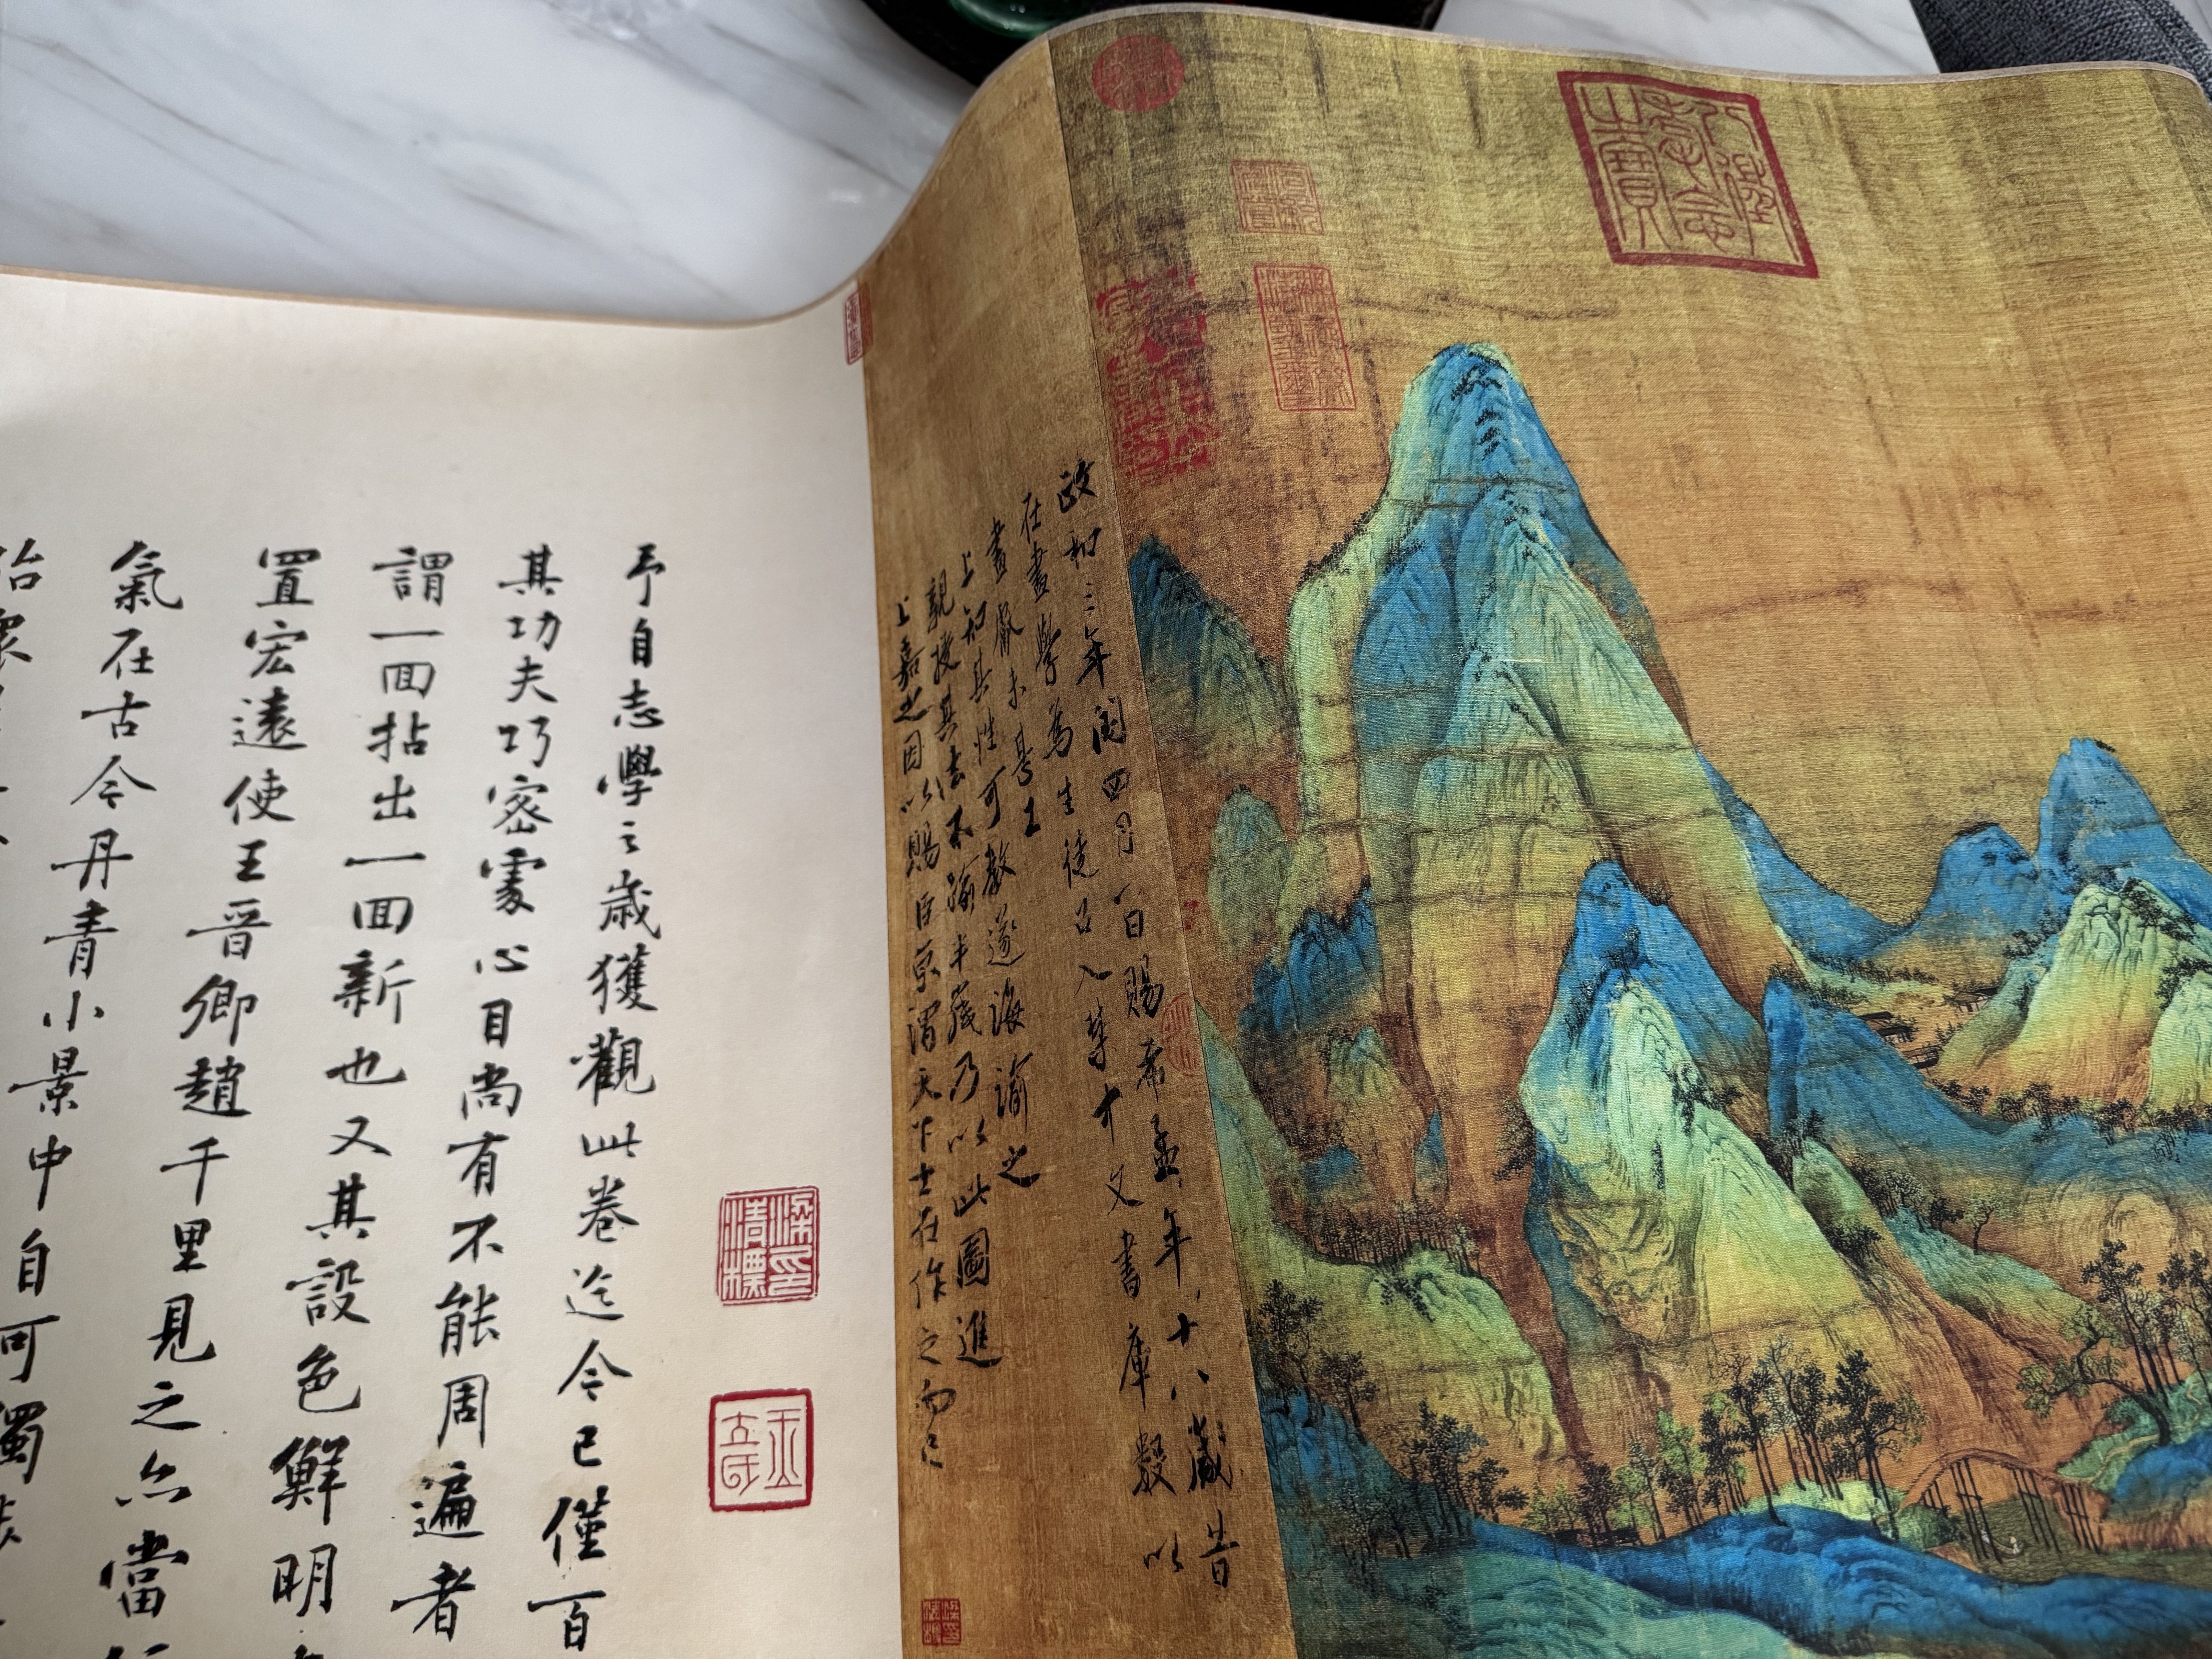 政和三年閏四月八日賜希孟年十八歲昔
在畫學為生徒召入禁中文書庫數以
畫獻未甚工
上知其性可教遂誨諭之
親授其法不踰半歲乃以此圖進
上嘉之因以賜臣京謂天下士在作之而已
梁清標印
予自志學之歲獲觀此卷迄今已僅百
其功夫巧密處心目尚有不能周遍者
謂一回拈出一回新也又其設色鮮明
置宏遠使王晉卿趙千里見之亦當
氣在古今丹青小景中自可獨